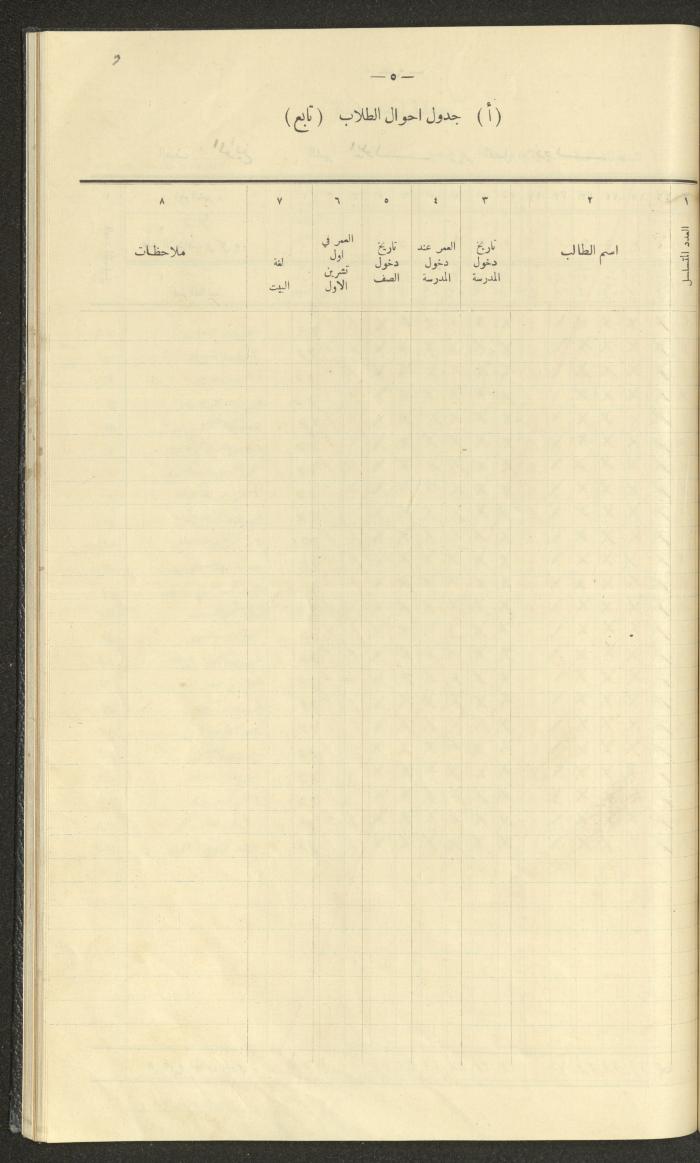 — ٥ —
(أ) جدول احوال الطلاب (تابع)
١ ٢ ٣ ٤ ٥ ٦ ٧ ٨
العدد المتسلسل
اسم الطالب
تاريخ
دخول
المدرسة
العمر عند
دخول
المدرسة
تاريخ
دخول
الصف
العمر في
اول
تشرين
الاول
لغة
البيت
ملاحظات